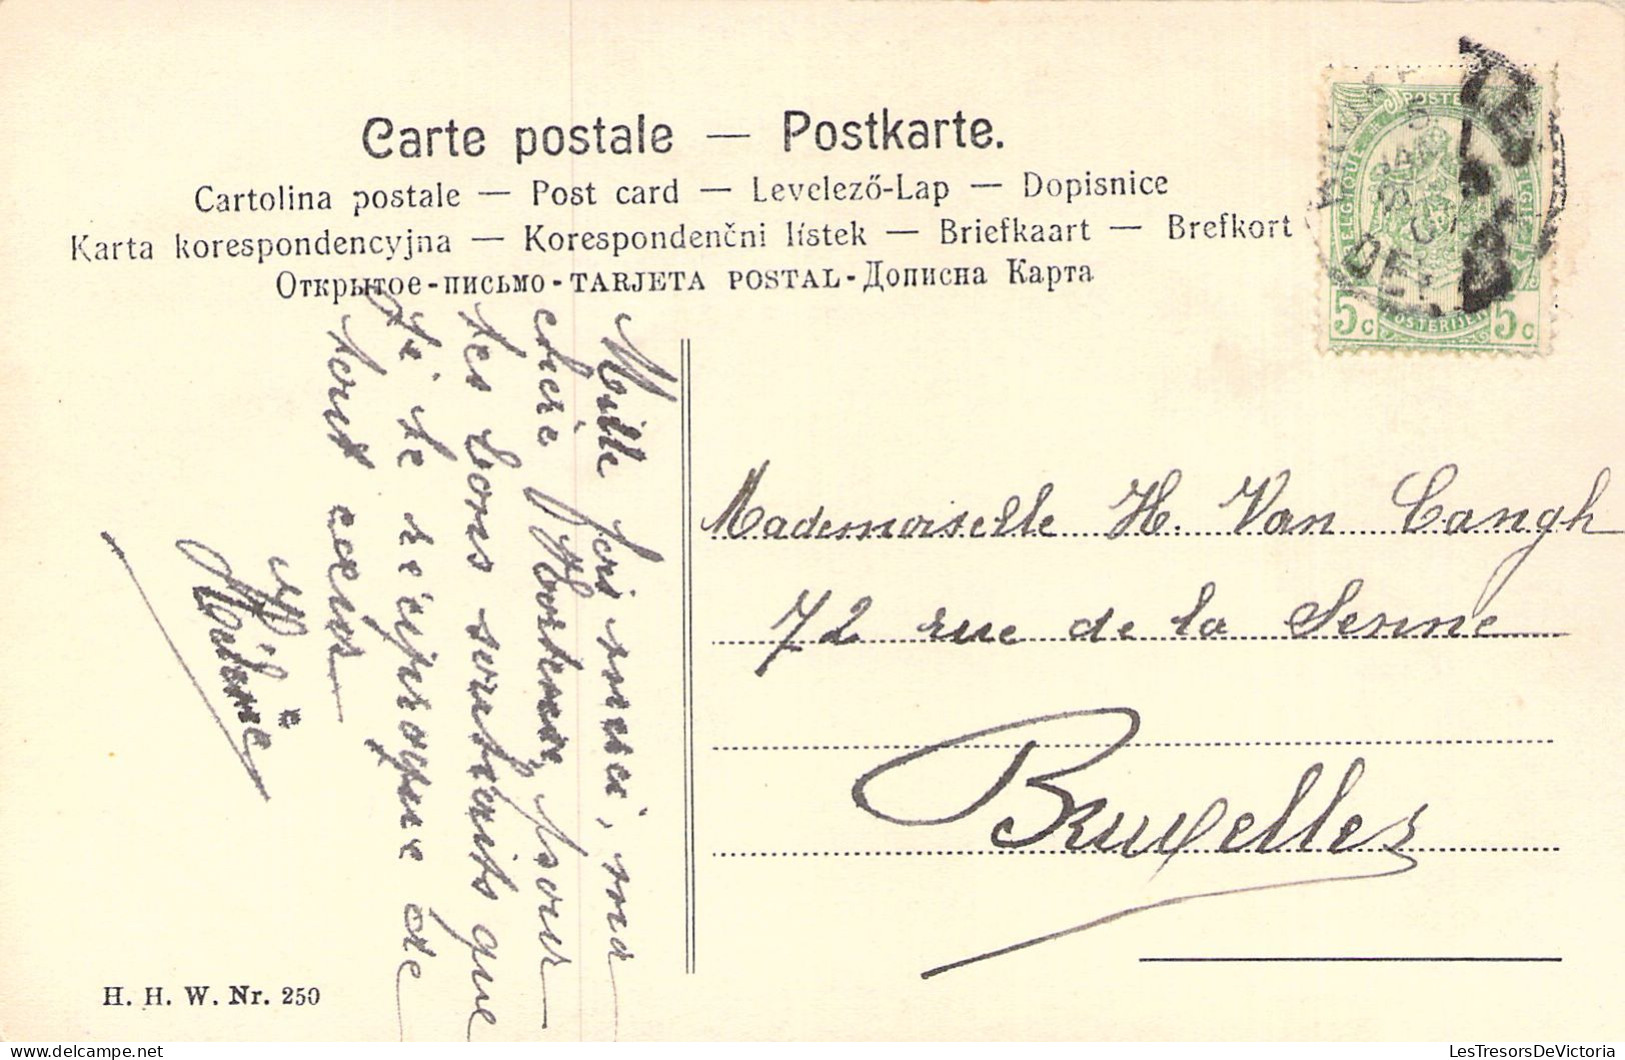 Carte postale — Postkarte.
Cartolina postale — Post card — Levelező-Lap — Dopisnice
Karta korespondencyjna — Korespondenčni lístek — Briefkaart — Brefkort
Открытое-письмо-TARJETA POSTAL-Дописна Карта
POSTE
BELGIQUE
BELGIE
5 c POSTERIJEN 5 c
Mille fois merci, ma
chère Hortense, pour
tes bons souhaits que
je te réciproque de
tout cœur
Hélène
Mademoiselle H. Van Cangh
72 rue de la Senne
Bruxelles
H. H. W. Nr. 250
LesTresorsDeVictoria